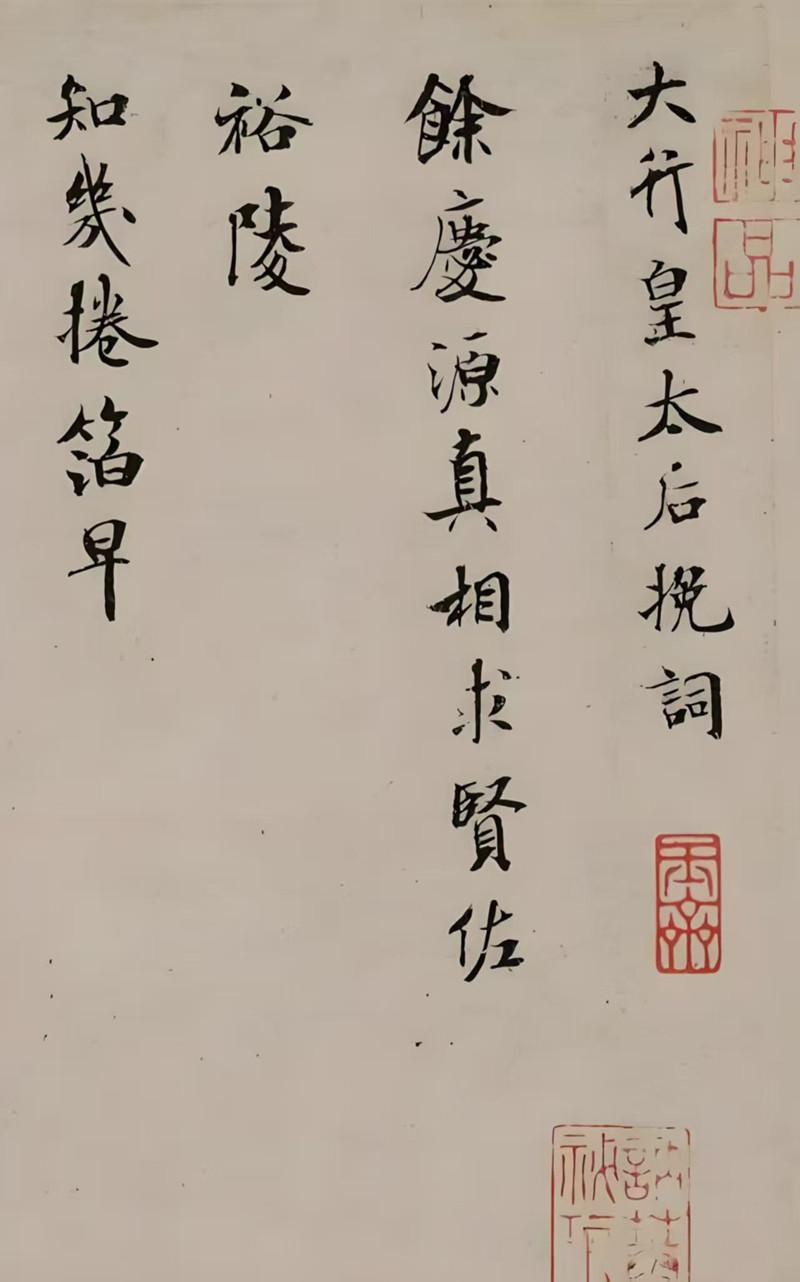 大行皇太后挽詞
餘慶源真相求賢佐
裕陵
知幾捲箔早
神品